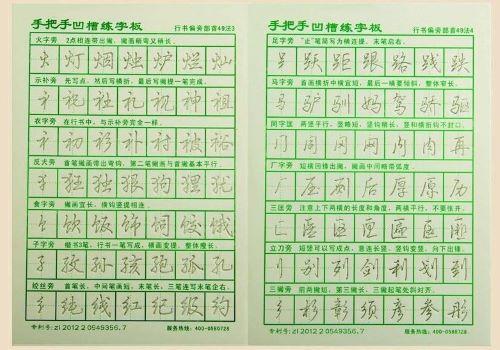 手把手凹槽练字板
行书偏旁部首49法3
火字旁 2点相连带出撇，撇画稍弯又稍长。
灯 烟 烛 炉 烂 灿
示补旁 先写点，然后写横折，最后写撇提一笔完成。
礻 祝 社 礼 视 神 祖
衣字旁 在行书中，与示补旁完全一样。
衤 初 衫 补 衬 被 裕
反犬旁 首笔撇画带出弯钩，第二笔撇画与首撇基本平行。
犭 狂 独 狠 狗 狸 犹
食字旁 撇画宜长，横钩竖提相连。
饣 饮 饭 饰 饲 饺 饿
子字旁 楷书3笔，行书一笔写成，横画变提，整体瘦长。
孙 孩 孢 孤 孔
绞丝旁 首笔长，中间笔画短，末笔长，三笔连写
纟 纯 线 红 纪 级 约
专利号:zl 2012 2 0549356.7
服务热线：400-0580728
手把手凹槽练字板
行书偏旁部首49法4
足字旁 "止"笔简写为横连提，末笔启右。
跃 距 跟 路 践 跌
马字旁 首画横折中横宜短，最后一横要倾斜，整体窄长。
马 驴 驯 妈 驾 骄 驱
同字匡 两竖平行，竖略短，竖钩稍长，竖和横折钩不封口。
冂 同 冈 网 肉 内 再
厂字旁 短横回锋出撇，撇画中间略带弧度。
厂 压 厕 后 厚 原 历
三匡旁 注意上下两横的长度和角度，两横平行，不要张开。
匚 医 匡 区 匠 匪
立刀旁 短竖可以写成点，意连长竖，竖钩变竖，向下出锋。
刂 别 列 剑 利 划 到
三撇旁 前两撇短，第三撇长，三撇起笔处斜对齐。
彡 彩 彰 须 彦 参 彤
专利号:zl 2012 2 0549356.7
服务热线：400-0580728